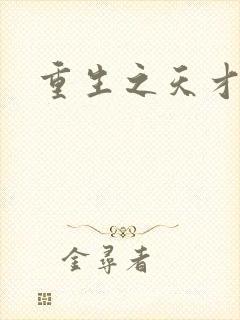 重生之天才
金尋者